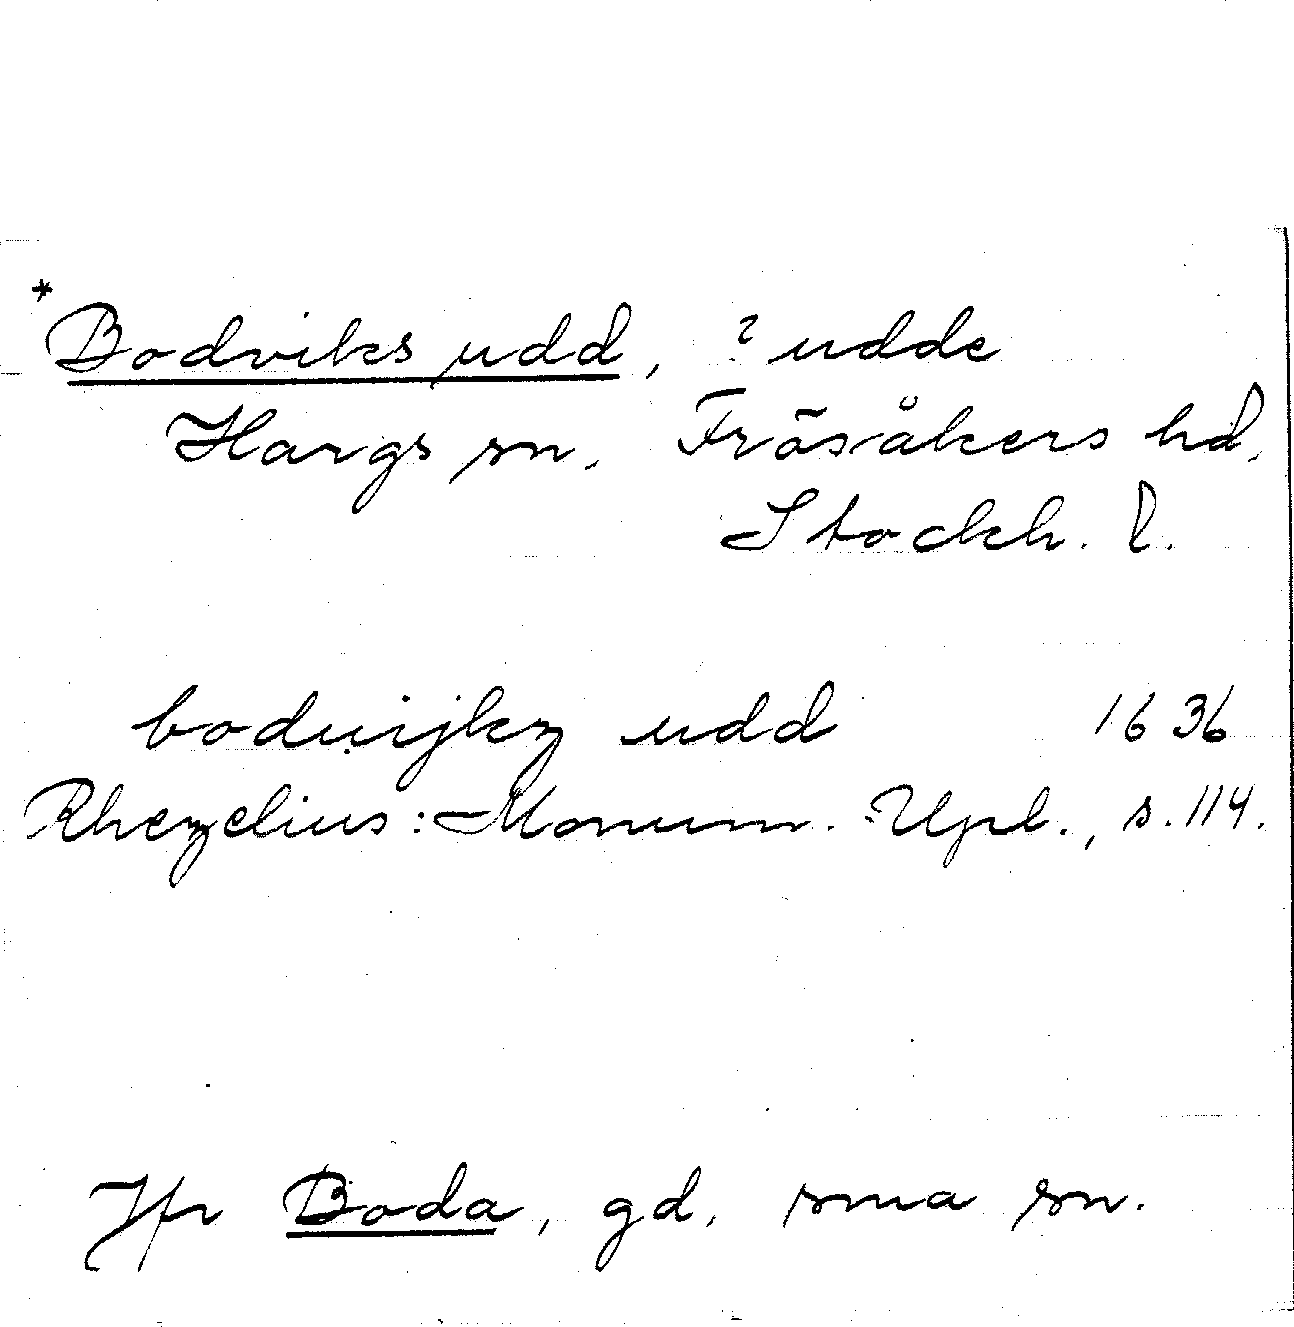 *Bodviks udd, ? udde
Hargs sn. Frösåkers hd.
Stockh. l.
boduijkz udd 1636
Rhezelius: Monum. Upl., s. 114.
Jfr Boda, gd, sma sn.